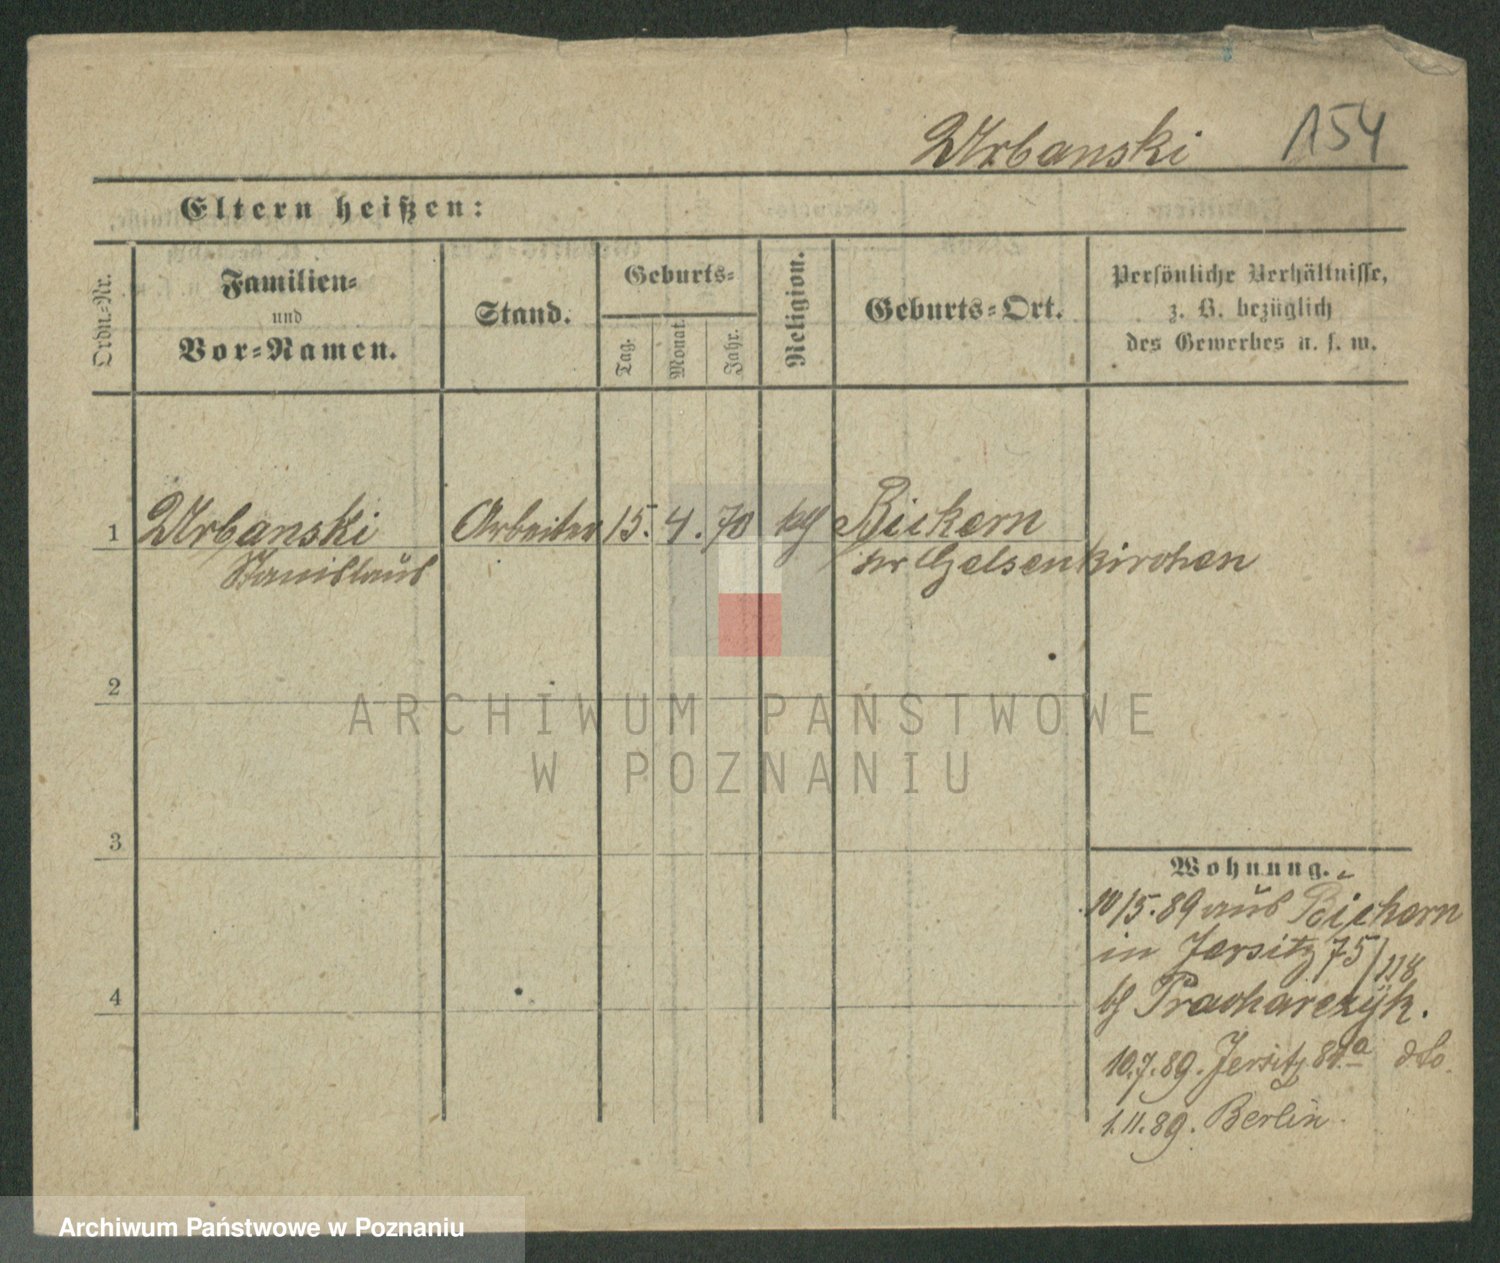 Urbanski 154
Eltern heißen:
Ordn.-Nr.
Familien-
und
Vor-Namen.
Stand.
Geburts-
Tag.
Monat.
Jahr.
Religion.
Geburts-Ort.
Persönliche Verhältnisse,
z. B. bezüglich
des Gewerbes u. s. w.
1 Urbanski Arbeiter 15. 4. 70 kth Bickern
Stanislaus
br Gelsenkirchen
2
3
4
ARCHIWUM PAŃSTWOWE
W POZNANIU
Wohnung.
10/5.89 aus Bickern
in Jersitz 75/118
bei Pracharczyk.
10.7.89. Jersitz 81.a dto.
1.11.89. Berlin.
Archiwum Państwowe w Poznaniu